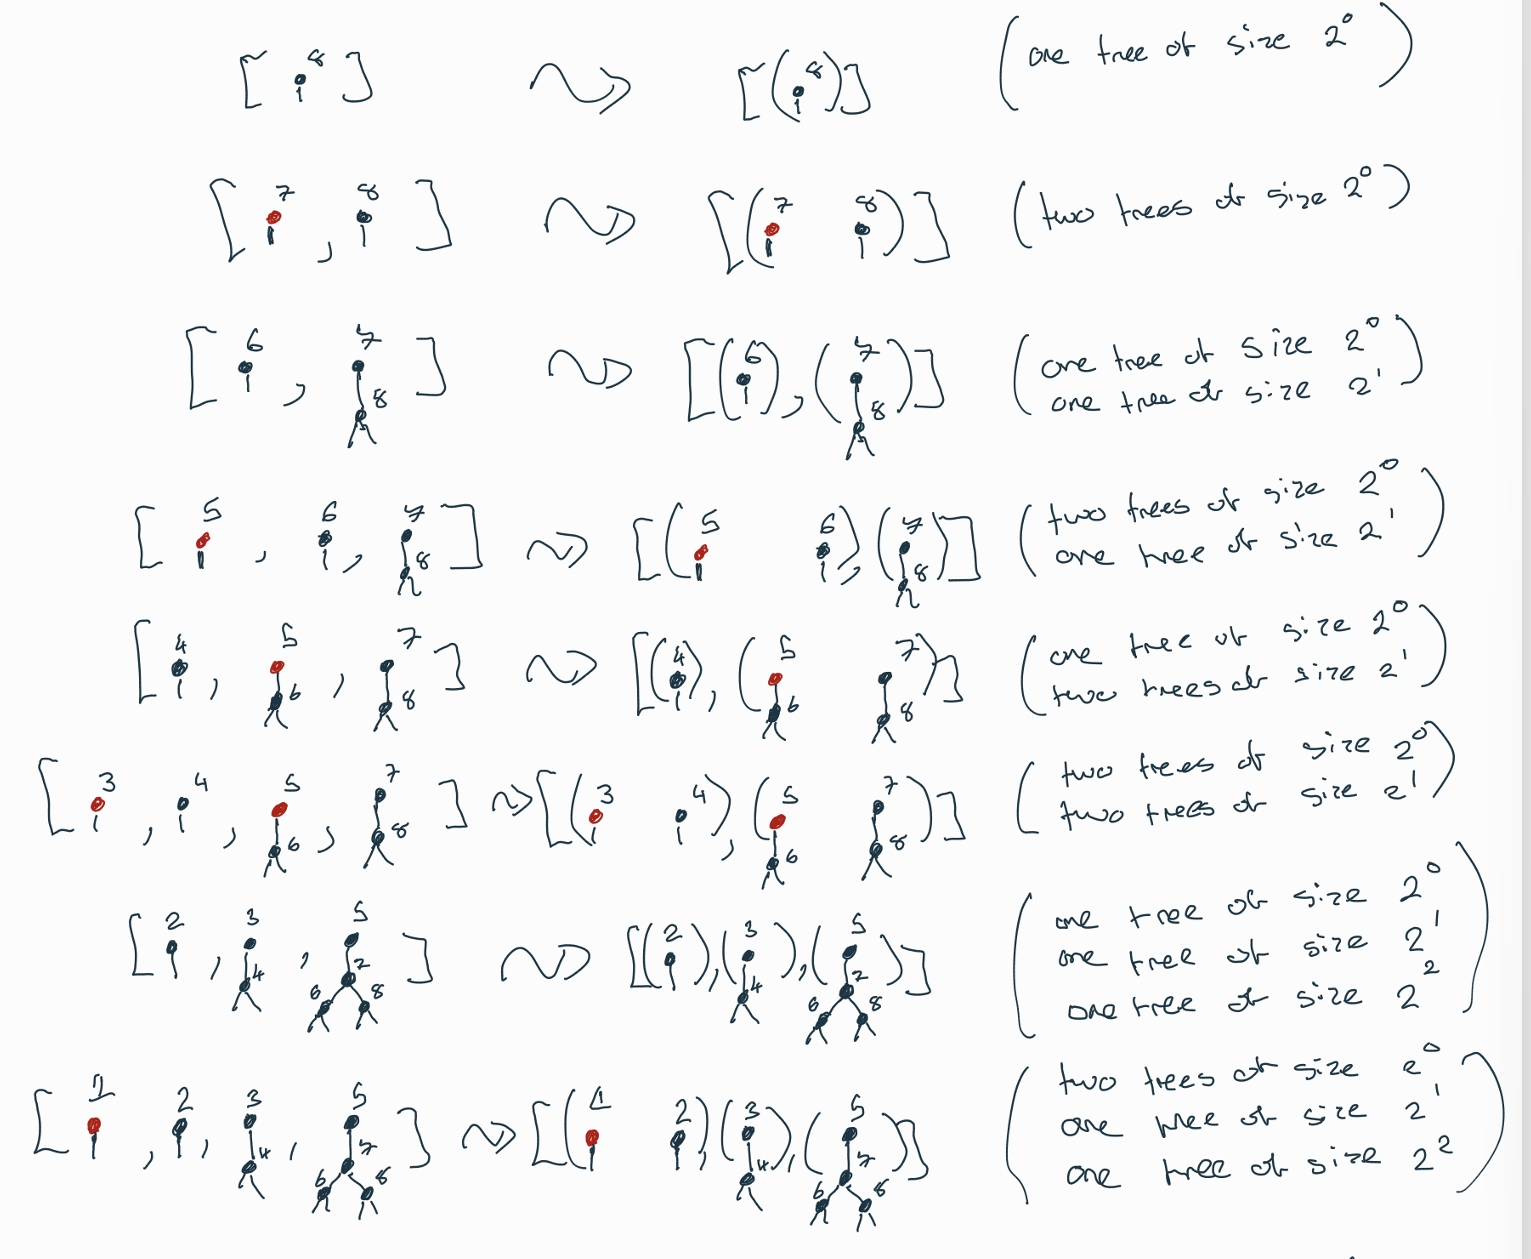 [ 8 ] [(8)] (one tree of size 2⁰)
[ 7 , 8 ] [(7 8)] (two trees of size 2⁰)
[ 6 , 7 8 ] [(6), (7 8)] (one tree of size 2⁰
one tree of size 2¹)
[ 5 , 6 , 7 8 ] [(5 6), (7 8)] (two trees of size 2⁰
one tree of size 2¹)
[ 4 , 5 6 , 7 8 ] [(4), (5 6 7 8)] (one tree of size 2⁰
two trees of size 2¹)
[ 3 , 4 , 5 6 , 7 8 ] [(3 4), (5 6 7 8)] (two trees of size 2⁰
two trees of size 2¹)
[ 2 , 3 4 , 5 7 6 8 ] [(2), (3 4), (5 7 6 8)] (one tree of size 2⁰
one tree of size 2¹
one tree of size 2²)
[ 1 , 2 , 3 4 , 5 7 6 8 ] [(1 2), (3 4), (5 7 6 8)] (two trees of size 2⁰
one tree of size 2¹
one tree of size 2²)